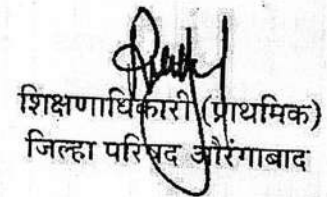 शिक्षणाधिकारी (प्राथमिक)
जिल्हा परिषद औरंगाबाद